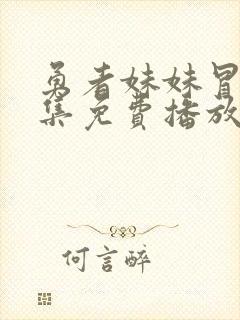 勇者妹妹冒
集免费播放
何言醉